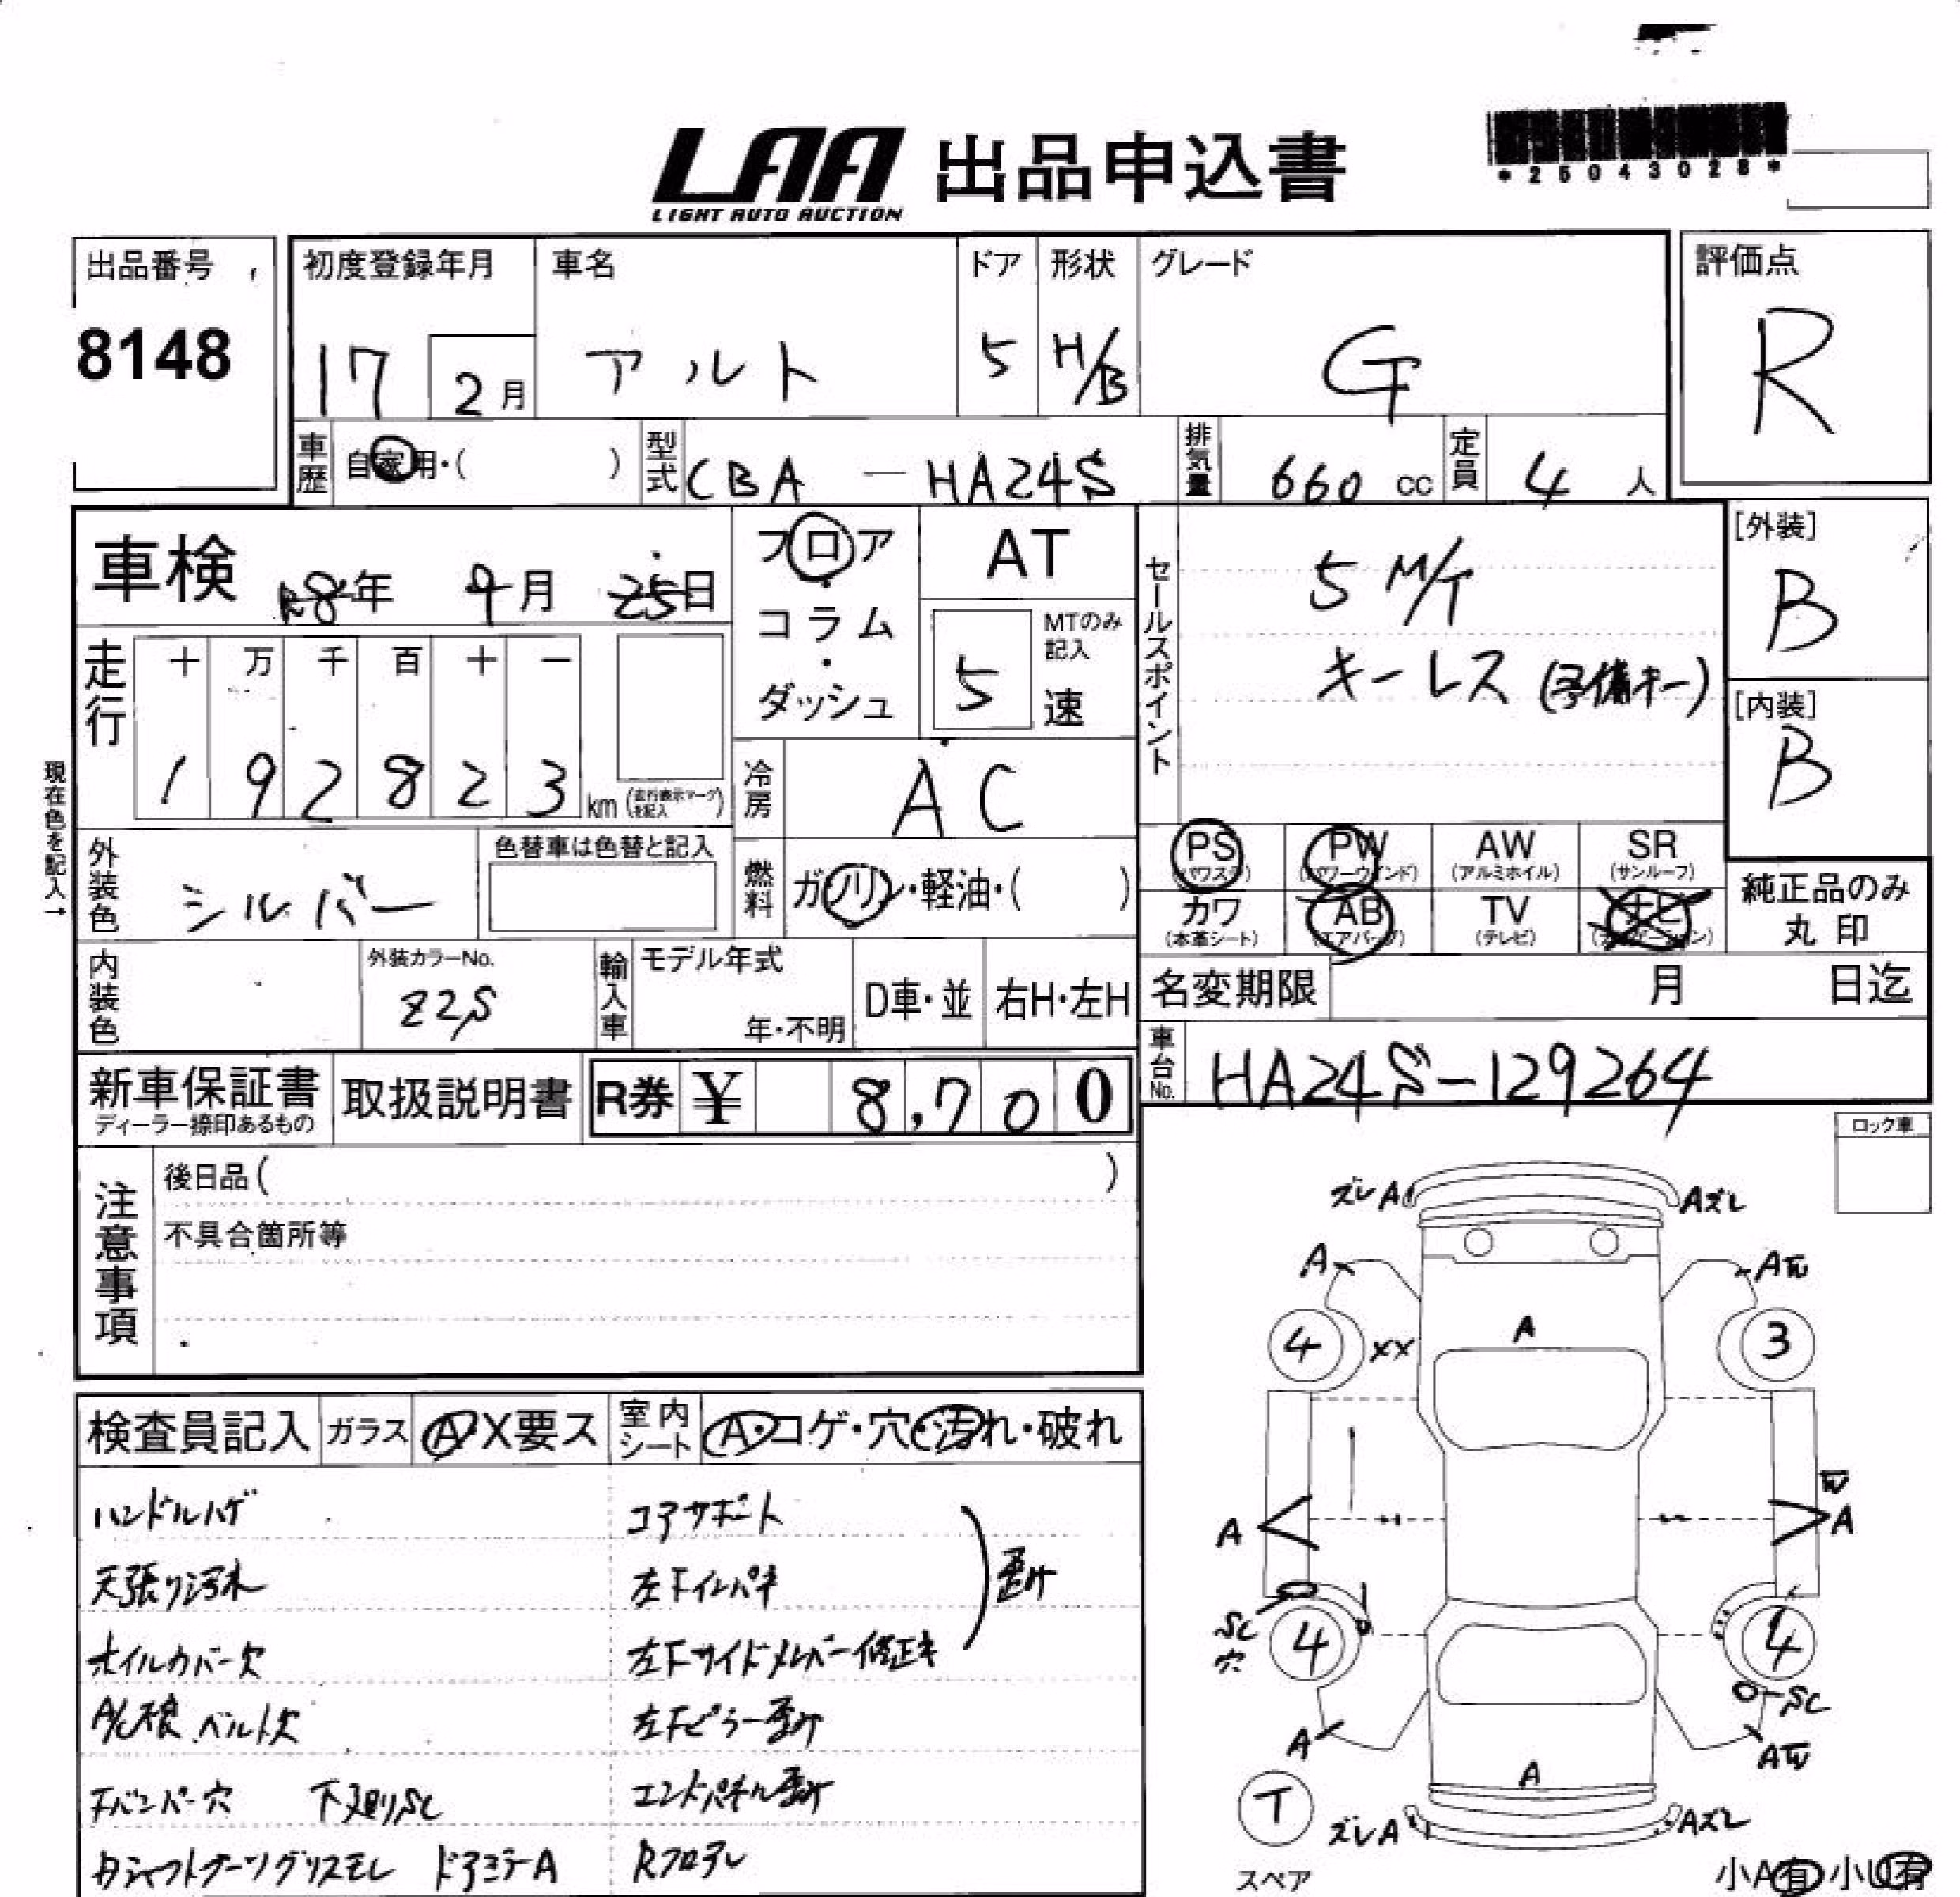 LAA 出品申込書
LIGHT AUTO AUCTION
*25043028*
出品番号
8148
初度登録年月
17 2月
車名
アルト
ドア
5
形状
H/B
グレード
G
評価点
R
車歴 自家用・( )
型式 CBA - HA24S
排気量 660 cc
定員 4 人
車検 R8年 9月 25日
フロア
・
コラム
・
ダッシュ
AT
MTのみ
記入
5 速
セールスポイント
5 M/T
キーレス (予備キー)
[外装]
B
[内装]
B
走行
十 万 千 百 十 一
1 9 2 8 2 3 km (走行表示マークを記入)
現在色を記入→
冷房 AC
外装色 シルバー
色替車は色替と記入
燃料 ガソリン・軽油・( )
PS (パワステ)
PW (パワーウインド)
AW (アルミホイル)
SR (サンルーフ)
カワ (本革シート)
AB (エアバッグ)
TV (テレビ)
ナビ (ナビゲーション)
純正品のみ
丸印
内装色
外装カラーNo.
Z2S
輸入車
モデル年式
年・不明
D車・並
右H・左H
名変期限 月 日迄
車台No. HA24S-129264
新車保証書
ディーラー捺印あるもの
取扱説明書
R券 ¥ 8,700
ロック車
注意事項
後日品( )
不具合箇所等
検査員記入
ガラス A・X要ス
室内シート A・コゲ・穴・汚れ・破れ
ハンドルハゲ
天張り汚れ
オイルカバー欠
A/C不良 ベルト欠
下廻りSC
ドアミラーA
コアサポート
左Fインパネ
左Fサイドメンバー修正キ
左Fピラー
エンドパネル
Rフロア
ズレA
Aズレ
A
A
4
XX
A
3
A
A
SC
穴
4
4
SC
A
A
A
T
スペア
ズレA
Aズレ
小A有 小U有